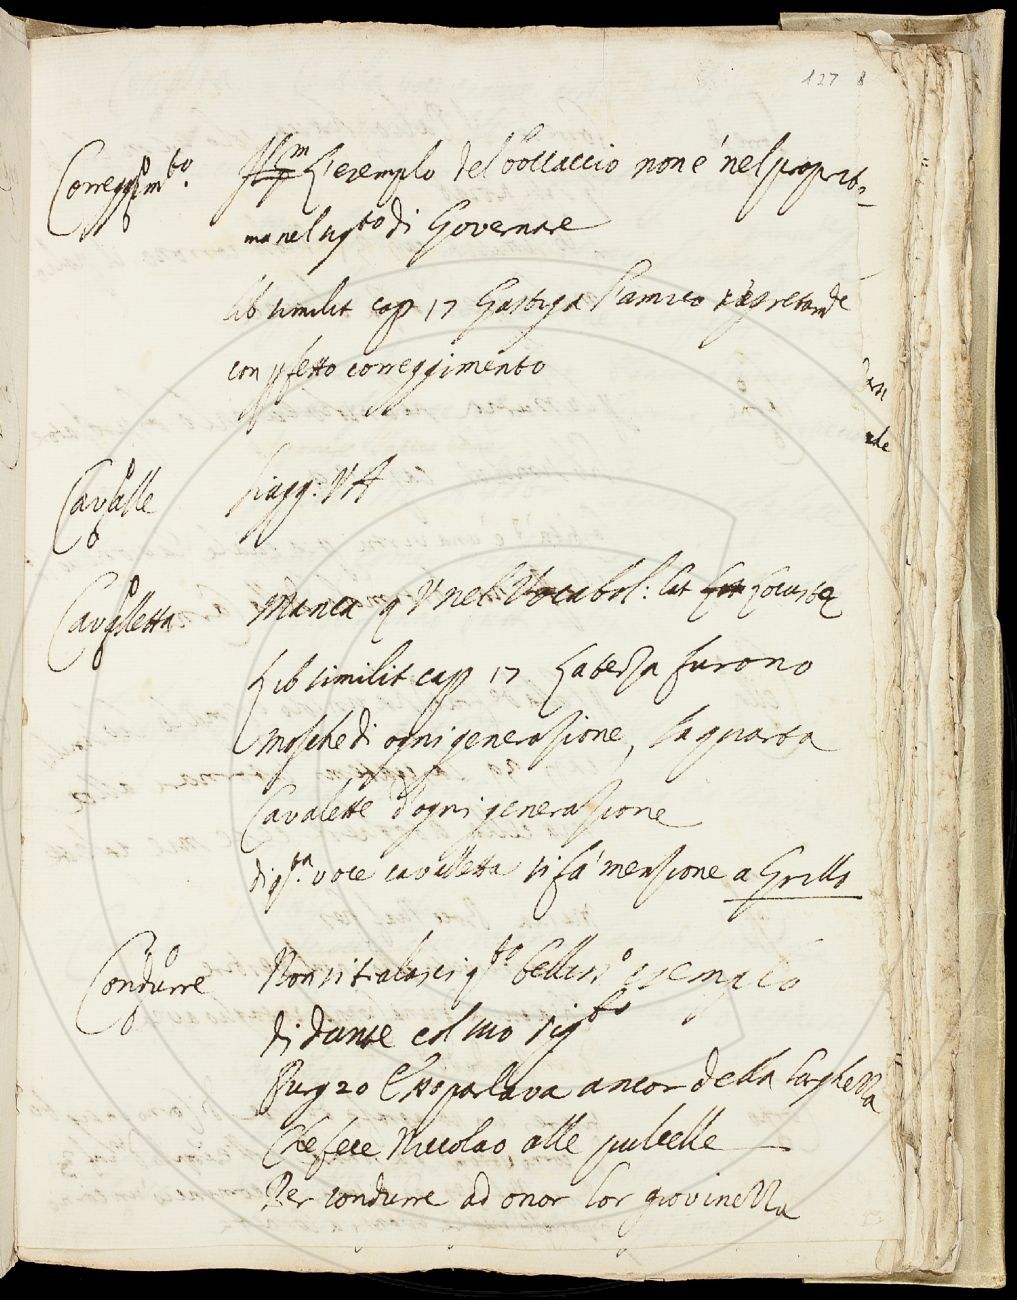 127 8
Corregg.mto L'exemplo del boccaccio non é nel proprio
ma nel sig.to di Governare
lib similit cap 17 Gastiga l'amico
con pfetto correggimento
Cavalle
Cavalletta Manca q V nel Vocabol: lat locusta
Lib similit cap 17 La terza furono
mosche di ogni generazione, la quarta
Cavalette d'ogni generazione
di q.ta voce cavalletta si fá menzione a Grillo
Condurre Non si tralasci q.to belliss.o esempio
di Dante col suo sig.to
Purg 20 Esso parlava ancor della larghezza
Che fece Niccolao alle pulcelle
Per condurre ad onor lor giovinezza